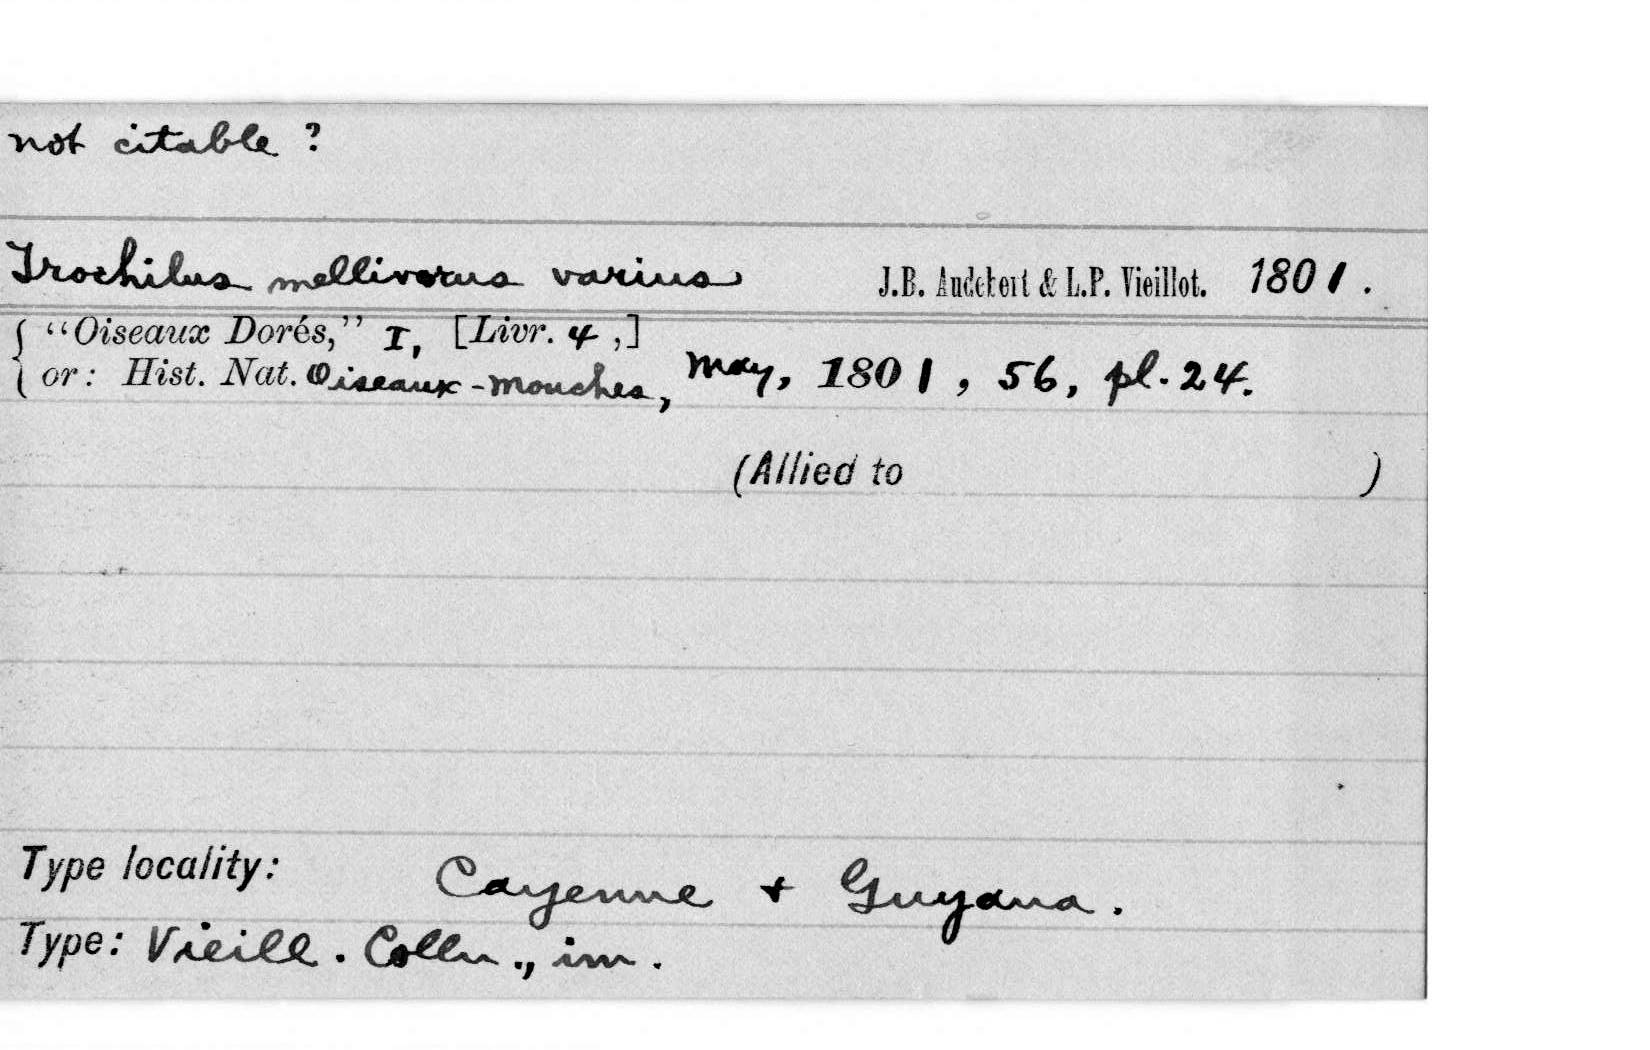 not citable ?
Trochilus mellivorus varius J.B. Audebert & L.P. Vieillot. 1801.
{ "Oiseaux Dorés," I, [Livr. 4,]
{ or: Hist. Nat. Oiseaux-mouches, May, 1801, 56, pl. 24.
(Allied to )
Type locality: Cayenne + Guyana.
Type: Vieill. Colln., im.